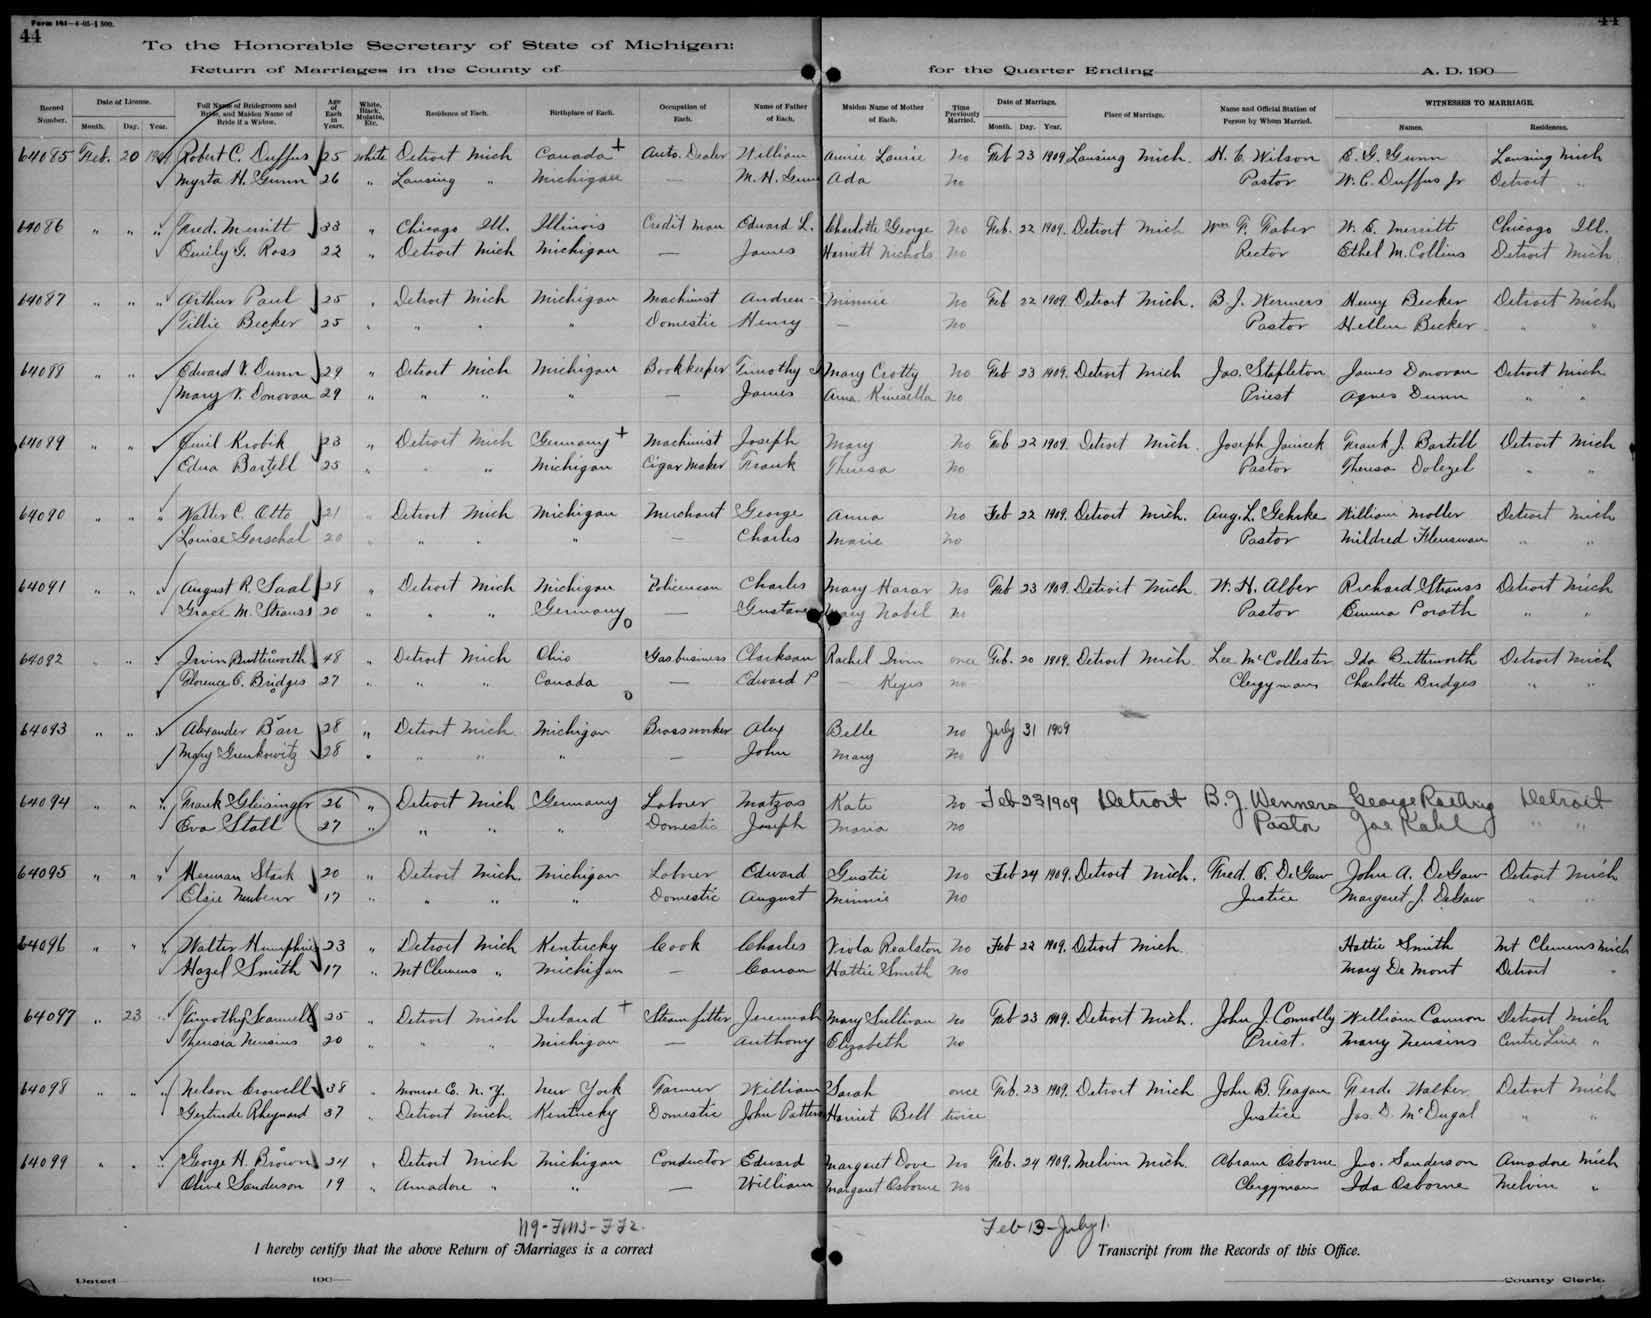 Form 161—4-05-1 500.
44
44
To the Honorable Secretary of State of Michigan:
Return of Marriages in the County of
for the Quarter Ending
A. D. 190
Record Number.
Date of License.
Month. Day. Year.
Full Name of Bridegroom and Bride, and Maiden Name of Bride if a Widow.
Age of Each in Years.
White, Black, Mulatto, Etc.
Residence of Each.
Birthplace of Each.
Occupation of Each.
Name of Father of Each.
Maiden Name of Mother of Each.
Time Previously Married.
Date of Marriage.
Month. Day. Year.
Place of Marriage.
Name and Official Station of Person by Whom Married.
WITNESSES TO MARRIAGE.
Names. Residences.
64085 Feb. 20 1909 Robert C. Duffus 25 White Detroit Mich Canada + Auto. Dealer William Annie Laurie No Feb 23 1909 Lansing Mich. H. C. Wilson E. G. Gunn Lansing Mich
Myrta H. Gunn 26 " Lansing " Michigan — M. H. Gunn Ada No Pastor W. C. Duffus Jr Detroit "
64086 " " " Fred. Merritt 33 " Chicago Ill. Illinois Credit Man Edward L. Charlotte George No Feb. 22 1909. Detroit Mich Wm F. Faber W. E. Merritt Chicago Ill.
Emily G. Ross 22 " Detroit Mich Michigan — James Harriett Nichols No Rector Ethel M. Collins Detroit Mich
64087 " " " Arthur Paul 25 " Detroit Mich Michigan Machinist Andrew Minnie No Feb 22 1909. Detroit Mich. B. J. Wermers Henry Becker Detroit Mich
Tillie Becker 25 " " " " Domestic Henry — No Pastor Hellen Becker " "
64088 " " " Edward V. Dunn 29 " Detroit Mich Michigan Bookkeeper Timothy Mary Crotty No Feb 23 1909. Detroit Mich Jas. Stapleton James Donovan Detroit Mich
Mary V. Donovan 29 " " " " — James Anna Kinsella No Priest Agnes Dunn " "
64089 " " " Emil Krobik 23 " Detroit Mich Germany + Machinist Joseph Mary No Feb 22 1909. Detroit Mich. Joseph Frank J. Bartell Detroit Mich
Edna Bartell 25 " " " Michigan Cigar Maker Frank Theresa No Pastor Theresa Dolezel " "
64090 " " " Walter C. Otto 21 " Detroit Mich Michigan Merchant George Anna No Feb 22 1909. Detroit Mich. Aug. L. Gehrke William Moller Detroit Mich
Louise Gorschal 20 " " " " — Charles Marie No Pastor Mildred " "
64091 " " " August R. Saal 28 " Detroit Mich Michigan Policeman Charles Mary Harar No Feb 23 1909. Detroit Mich. W. H. Alber Richard Strauss Detroit Mich
Grace M. Strauss 20 " " " Germany o — Gustave Mary Nabel No Pastor Emma Porath " "
64092 " " " Irvin Butterworth 48 " Detroit Mich Ohio Gas business Clarkson Rachel Irvin once Feb. 20 1909. Detroit Mich. Lee McCollester Ida Butterworth Detroit Mich
Florence E. Bridges 27 " " " Canada o — Edward P — Keyes no Clergyman Charlotte Bridges " "
64093 " " " Alexander Barr 28 " Detroit Mich Michigan Brassworker Alex Belle No July 31 1909
Mary Grenkowitz 28 " " " " — John Mary No
64094 " " " Frank Gleisinger 26 " Detroit Mich Germany Laborer Matzas Kate No Feb 23 1909 Detroit B. J. Wenners George Detroit
Eva Stall 27 " " " " Domestic Joseph Maria No Pastor Joe " "
64095 " " " Herman Stark 20 " Detroit Mich. Michigan Laborer Edward Gustie No Feb 24 1909. Detroit Mich. Fred. E. DeGaw John A. DeGaw Detroit Mich
Elsie 17 " " " " Domestic August Minnie No Justice Margaret J. DeGaw " "
64096 " " " Walter Humphries 23 " Detroit Mich Kentucky Cook Charles Viola Realston No Feb 22 1909. Detroit Mich. Hattie Smith Mt Clemens Mich
Hazel Smith 17 " Mt Clemens " Michigan — Canan Hattie Smith No Mary De Mont Detroit "
64097 " 23 " Timothy Scannell 25 " Detroit Mich Ireland + Steam fitter Jeremiah Mary Sullivan No Feb 23 1909. Detroit Mich. John J. Connolly William Cannon Detroit Mich
Theresia Neusius 20 " " " Michigan — Anthony Elizabeth No Priest. Mary Neusins Centre Line "
64098 " " " Nelson Crowell 38 " Monroe C. N.Y. New York Farmer William Sarah once Feb. 23 1909. Detroit Mich John B. Teagan Ferd. Walker Detroit Mich
Gertrude Rheynard 37 " Detroit Mich. Kentucky Domestic John Harriet Bell twice Justice Jas. D. McDugal " "
64099 " " " George H. Brown 24 " Detroit Mich Michigan Conductor Edward Margaret Dove No Feb. 24 1909. Melvin Mich. Abram Osborne Jno. Sanderson Amadore Mich
Olive Sanderson 19 " Amadore " " — William Margaret Osborne No Clergyman Ida Osborne Melvin "
Feb 13-July 1.
I hereby certify that the above Return of Marriages is a correct
Transcript from the Records of this Office.
Dated 190
County Clerk.